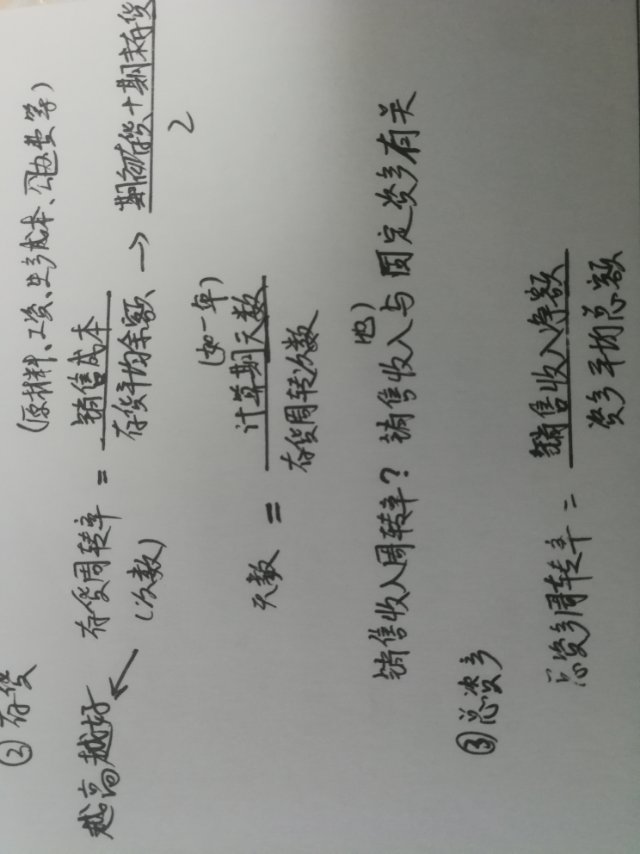 ②存货
(原材料、工资、生产成本、水电费等)
越高越好
存货周转率 = 销售成本
存货平均余额 → 期初存货+期末存货
2
(次数)
(如一年)
天数 = 计算期天数
存货周转次数
销售收入周转率? 销售收入(也)与固定资产有关
③总资产
总资产周转率 = 销售收入净额
资产平均总额